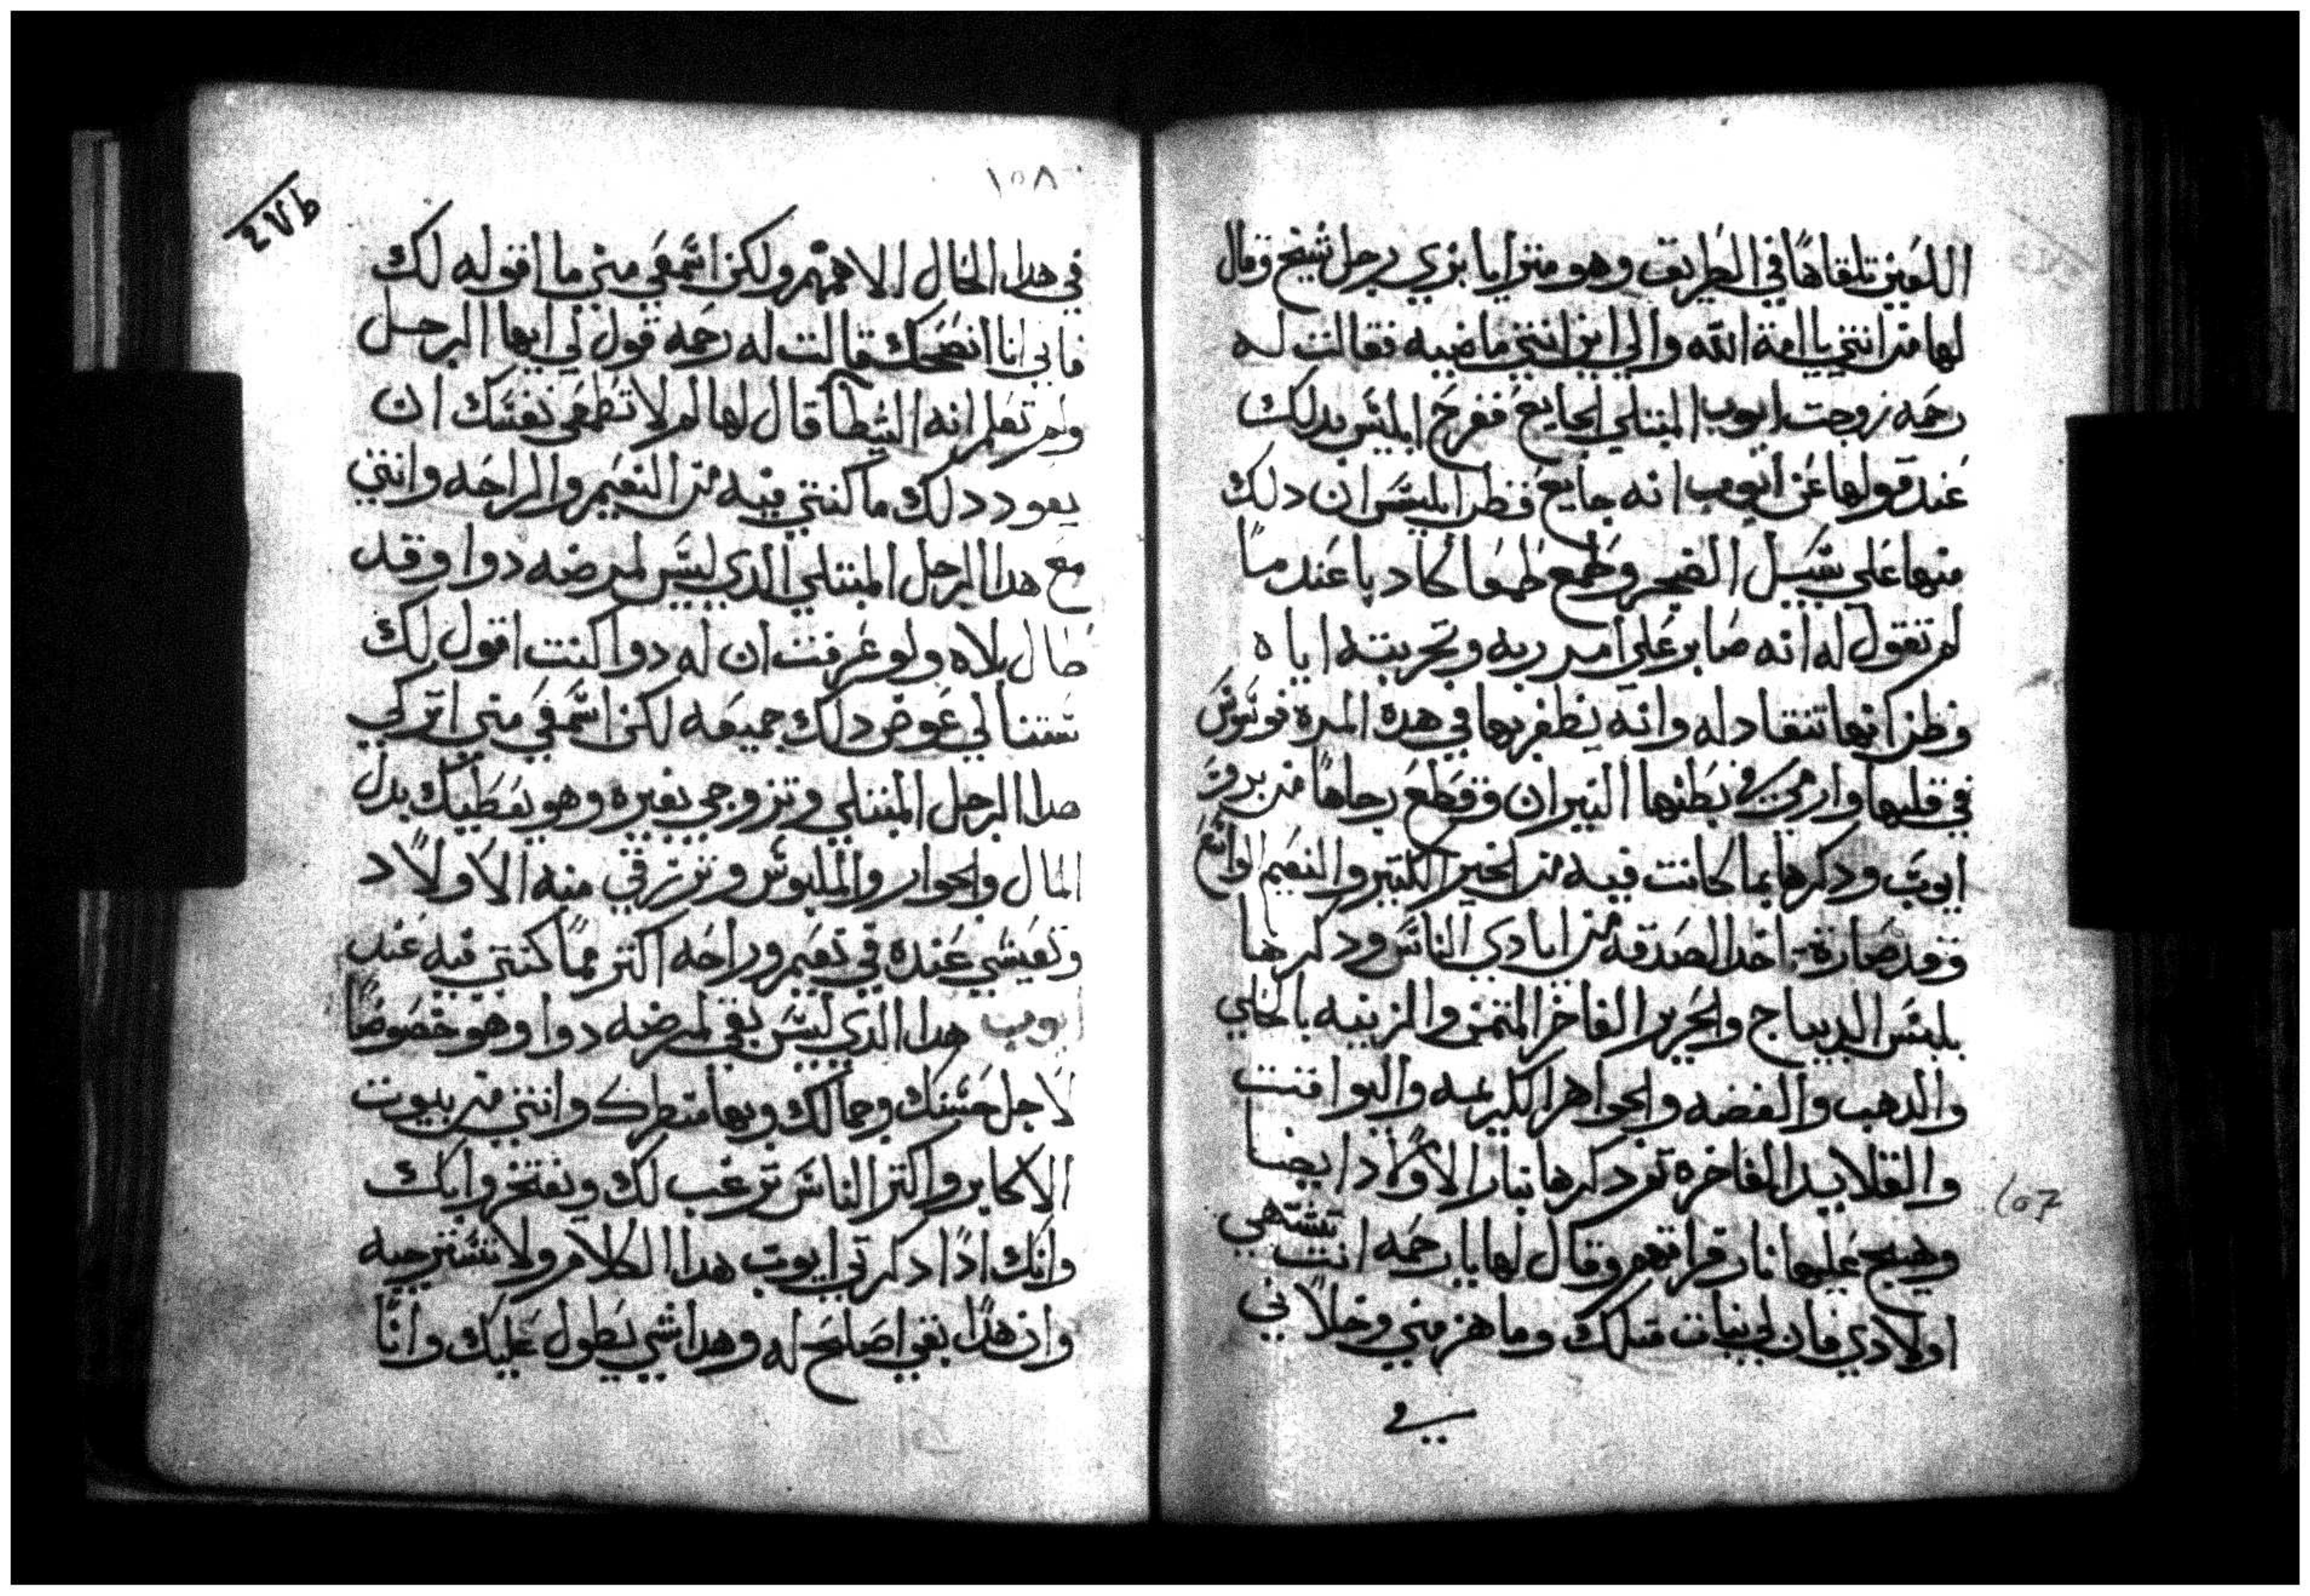 اللعين تلقاها في الطريق وهو متزايا بزي رجل شيخ وقال
لها من انتي يا امة الله والي اين انتي ماضيه فقالت له
رحمه زوجت ايوب المبتلي الجايع ففرح ابليس بدلك
عند قولها عن ايوب انه جايع فظن ابليس ان دلك
منها علي سبيل الضجر وطمع طمعا كادبا عند ما
لم تقول له انه صابر علي امر ربه وتجربته اياه
وظن انها تنقاد له وانه يظفر بها في هده المره فوسوس
في قلبها وارمي في بطنها النيران وقطع رجاها من برو
ايوب ودكرها بما كانت فيه من الخير الكتير والنعيم الواسع
وقد صارة تاخد الصدقه من ايادي الناس ودكرها
بلبس الديباج والحرير الفاخر المتمن والزينه بالحلي
والدهب والفضه والجواهر الكريمه واليواقت
والقلايد الفاخره تم دكرها بنار الاولاد ايضا
وهيج عليها نار فراقهم وقال لها يا رحمه انت تشتهي
اولادي فان لي بنات متلك وما هن مني وخلاني
في
١٥٧
١٥٨
٤٧٦
في هدا الحال الا همهم ولكن اسمعي مني ما اقوله لك
فاني انا انصحك قالت له رحمه قول لي ايها الرجل
ولم تعلم انه الشيطا قال لها لم لا تطمعي نفسك ان
يعود دلك ما كنتي فيه من النعيم والراحه وانتي
مع هدا الرجل المبتلي الدي ليس لمرضه دوا وقد
طال بلاه ولو عرفت ان له دوا كنت اقول لك
ستنالي عوض دلك جميعه لكن اسمعي مني اتركي
هدا الرجل المبتلي وتزوجي بغيره وهو يعطيك بدل
المال والجوار والملبوس وترزقي منه الاولاد
وتعيشي عنده في نعيم وراحه اكتر مما كنتي فيه عند
ايوب هدا الدي ليس بقي لمرضه دوا وهو خصوصا
لاجل حسنك وجمالك وبها منطرك وانتي من بيوت
الاكابر واكتر الناس ترغب لك ويفتخروا بك
وانك ادا دكرتي ايوب هدا الكلام ولا تسترجيه
وان هدا بقي اصلح له وهدا شي يطول عليك وانا